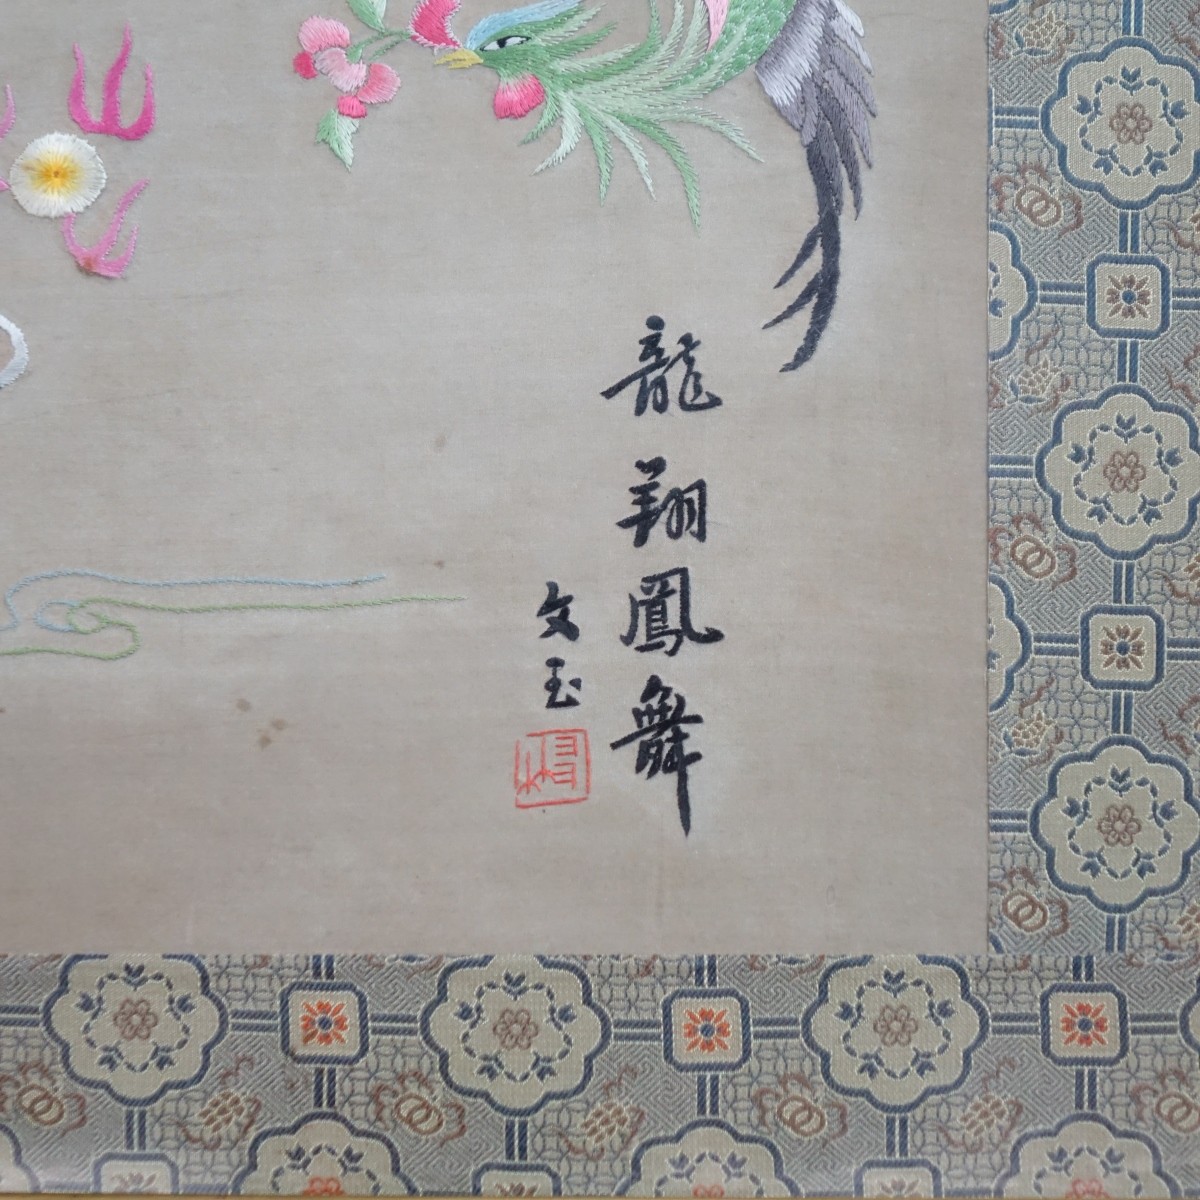 龍翔鳳舞
文玉